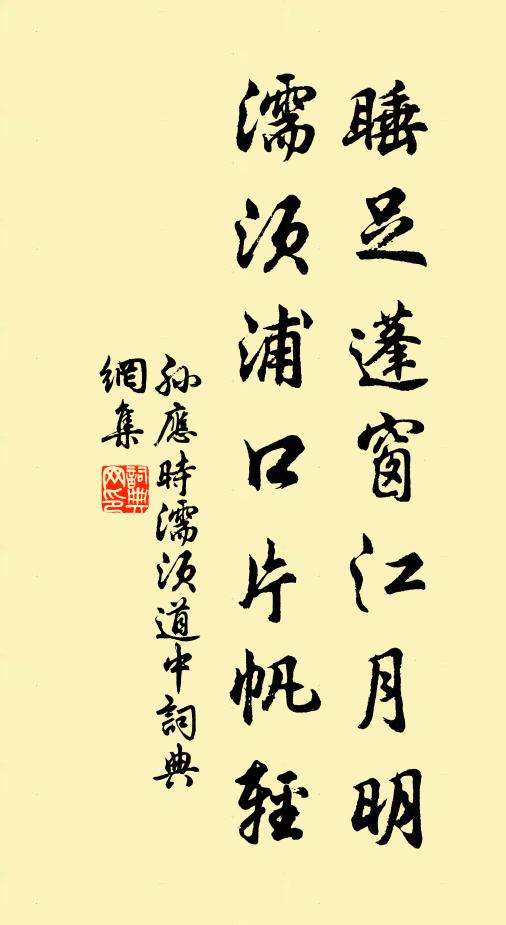 睡足蓬窗江月明
濡须浦口片帆輕
孙應時濡须道中詞典
網集
詞典
网印